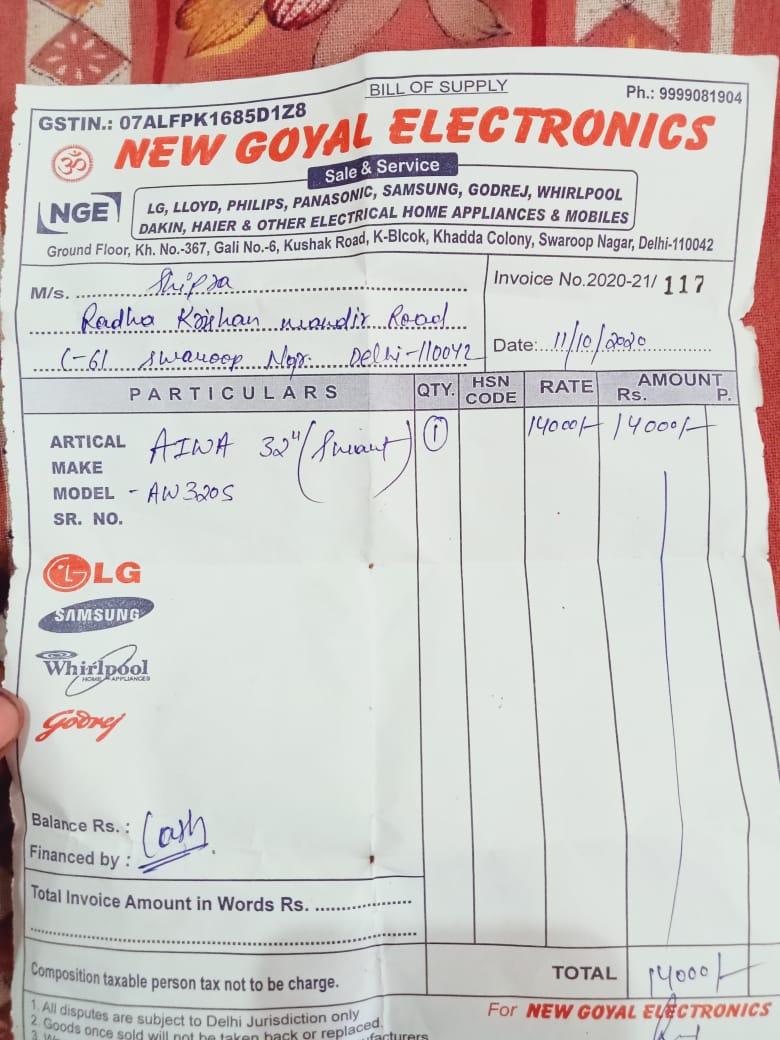 BILL OF SUPPLY
GSTIN.: 07ALFPK1685D1Z8 Ph.: 9999081904
ॐ
NEW GOYAL ELECTRONICS
Sale & Service
NGE
LG, LLOYD, PHILIPS, PANASONIC, SAMSUNG, GODREJ, WHIRLPOOL
DAKIN, HAIER & OTHER ELECTRICAL HOME APPLIANCES & MOBILES
Ground Floor, Kh. No.-367, Gali No.-6, Kushak Road, K-Blcok, Khadda Colony, Swaroop Nagar, Delhi-110042
M/s. Shipra
Radha Krishan mandir Road
C-61 Swaroop Ngr. Delhi-110042
Invoice No.2020-21/ 117
Date: 11/10/2020
PARTICULARS QTY. HSN CODE RATE AMOUNT Rs. P.
ARTICAL AIWA 32" (Smart) 1 14000/- 14000/-
MAKE
MODEL - AW320S
SR. NO.
LG
SAMSUNG
Whirlpool
HOME APPLIANCES
Godrej
Balance Rs. : Cash
Financed by :
Total Invoice Amount in Words Rs.
Composition taxable person tax not to be charge. TOTAL 14000/-
1. All disputes are subject to Delhi Jurisdiction only
2. Goods once sold will not be taken back or replaced.
For NEW GOYAL ELECTRONICS